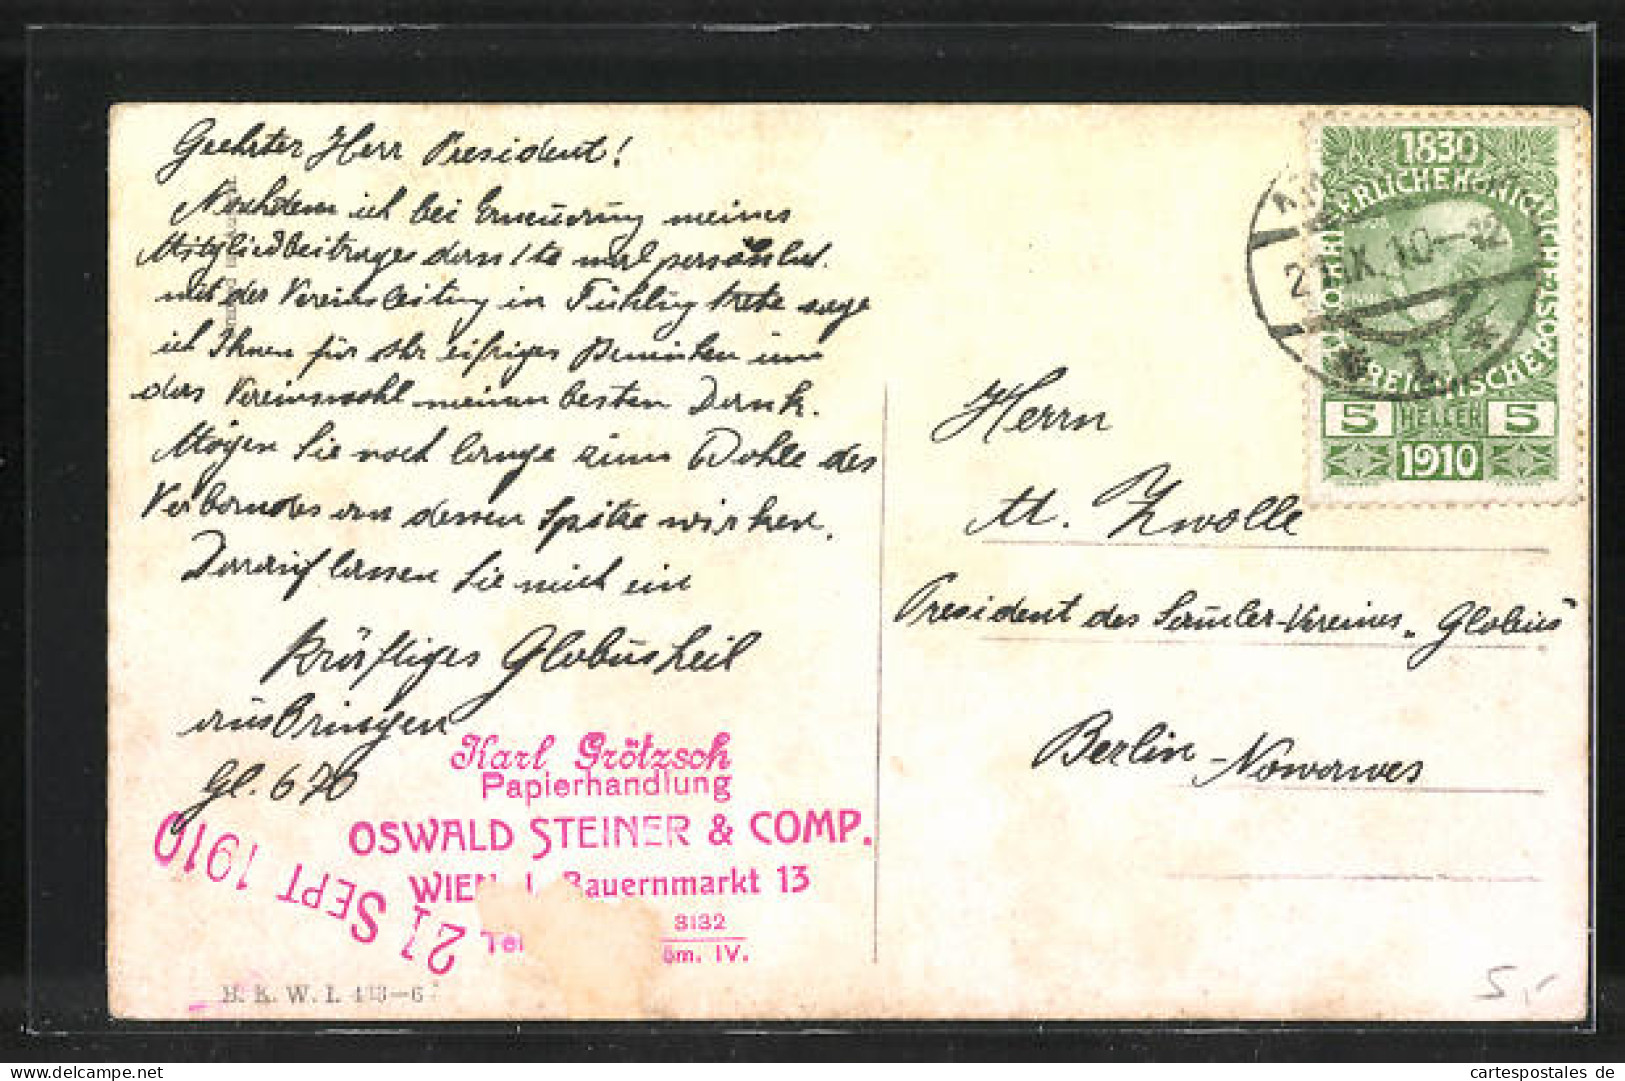 Geehrter Herr President!
Nachdem ich bei Erneuerung meines
Mitgliedbeitrages das 1te mal persönlich.
mit der Vereinsleitung in Fühlug trete sage
ich Ihnen für Ihr eifriges Bemühen um
das Vereinswohl meinen besten Dank.
Mögen Sie noch lange zum Wohle des
Verbandes an dessen Spitze wirken.
Darauf lassen Sie mich ein
kräftiges Globusheil
ausbringen
Gl. 670
Karl Grötzsch
Papierhandlung
OSWALD STEINER & COMP.
WIEN I. Bauernmarkt 13
Tel
3132
öm. IV.
21 SEPT 1910
B. K. W. I. 433-6
1830
KAISERLICHE KÖNIGLICHE ÖSTERREICHISCHE POST
5 HELLER 5
1910
21.IX.10-12
* 1 *
Herrn
M. Zwolle
President des Samler-Vereines „Globus"
Berlin-Nowawes
5,-
www.cartespostales.de